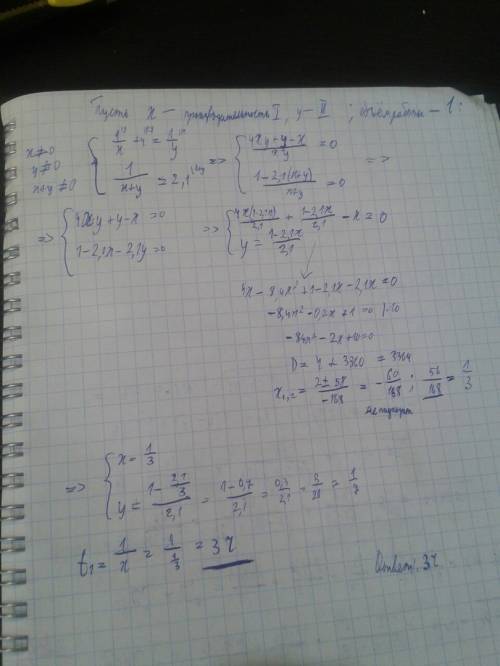 Пусть x – производительность I, y – II ; объём работы – 1:
x≠0
y≠0
x+y≠0
1/x + 4 = 1/y
1/(x+y) = 2,1
=> (4xy+y-x)/xy = 0
(1-2,1(x+y))/(x+y) = 0
=>
=> 4xy+y-x=0
1-2,1x-2,1y=0
=> 4x(1-2,1x)/2,1 + (1-2,1x)/2,1 - x=0
y = (1-2,1x)/2,1
4x-8,4x²+1-2,1x-2,1x=0
-8,4x²-0,2x+1=0 |·10
-84x²-2x+10=0
D= 4+3360 = 3364
x₁,₂ = (2±58)/-168 = -60/168 ; 56/168 = 1/3
не подходит
=> x= 1/3
y= (1-2,1/3)/2,1 = (1-0,7)/2,1 = 0,3/2,1 = 3/21 = 1/7
t₁= 1/x = 1/(1/3) = 3ч
Ответ: 3ч